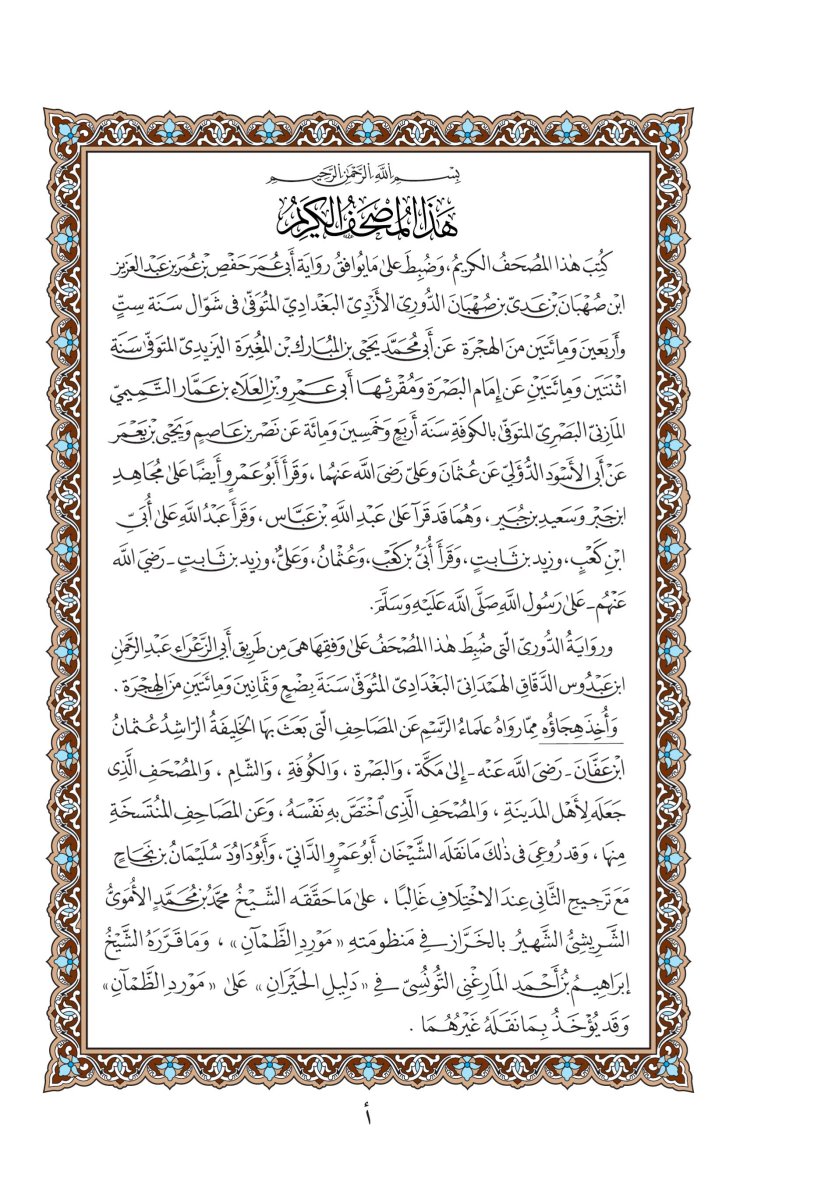 بِسْمِ اللَّهِ الرَّحْمَٰنِ الرَّحِيمِ
هَذَا الْمُصْحَفُ الْكَرِيمُ
كُتِبَ هٰذا المُصحَفُ الكريمُ، وَضُبِطَ عَلىٰ مَا يُوَافِقُ رِوَايَةَ أَبِي عُمَرَ حَفْصِ بْنِ عُمَرَ بْنِ عَبْدِ العَزِيزِ
ابْنِ صُهْبَانَ بْنِ عَدِيِّ بْنِ صُهْبَانَ الدُّورِيِّ الأَزْدِيِّ البَغْدَادِيِّ المُتَوَفَّىٰ فِى شَوَّال سَنَة سِتٍّ
وَأَربَعينَ وَمِائَتَين مِنَ الهِجْرَةِ عَن أَبِي مُحَمَّد يَحْيَى بْنِ المُبَارَك بْنِ المُغِيرَةِ اليَزِيدِيّ المُتَوَفَّىٰ سَنَةَ
اثْنَتَين وَمِائتَيْنِ عَن إِمَام البَصْرَة وَمُقْرِئِهَا أَبِي عَمْرِو بْنِ العَلَاءِ بْنِ عَمَّار التَّمِيمِيّ
المَازِنِيّ البَصْرِيّ المُتَوَفَّىٰ بالكُوفَةِ سَنَةَ أَربَعٍ وَخَمسِينَ وَمِائَة عَن نَصْر بْنِ عَاصِمٍ وَيَحْيَى بْنِ يَعْمَرَ
عَنْ أَبِي الأَسْوَد الدُّؤَلِيّ عَن عُثمَانَ وَعَلِيّ رَضِىَ اللَّه عَنهُما، وَقَرَأَ أَبُو عَمْرٍو أَيضًا عَلىٰ مُجَاهِدِ
ابْنِ جَبْرٍ وَسَعِيدِ بْنِ جُبَيرٍ، وَهُمَا قَد قَرَآ عَلىٰ عَبدِ اللَّهِ بْنِ عَبَّاس، وَقَرأَ عَبْدُ اللَّهِ عَلىٰ أُبَيِّ
ابْنِ كَعْبٍ، وزيد بن ثَابِتٍ، وَقَرَأَ أُبَيُّ بْنُ كَعْبٍ، وَعُثْمَانُ، وَعَلِيٌّ، وزيد بن ثَابِتٍ - رَضِىَ اللَّه
عَنْهُم - عَلىٰ رَسُول اللَّهِ صَلَّى اللَّه عَلَيْهِ وَسَلَّمَ.
وروَايَةُ الدُّورِيّ الّتي ضُبِطَ هٰذا المُصْحَفُ عَلىٰ وَفقِهَا هى مِن طَرِيق أَبِي الزَّعْرَاءِ عَبْدِ الرَّحْمٰنِ
ابْنِ عَبْدُوس الدَّقَّاقِ الهَمْدَانِيّ البَغْدَادِيّ المُتَوَفَّىٰ سَنَةَ بِضْعٍ وَثَمَانِينَ وَمِائَتَينِ مِنَ الهِجْرَةِ.
وَأُخِذ هِجَاؤُه مِمّا رَوَاهُ عُلمَاءُ الرَّسْمِ عَن المَصَاحِفِ الّتي بَعَثَ بِهَا الخَلِيفَةُ الرّاشِدُ عُثمَانُ
ابْنُ عَفَّانَ - رَضِىَ اللَّه عَنْه - إِلىٰ مَكَّةَ، وَالبَصْرَة، وَالكُوفَةِ، وَالشّامِ، وَالمُصْحَفِ الَّذِى
جَعَلَه لِأَهْلِ المَدِينَةِ، وَالمُصْحَفِ الَّذِى اخْتَصَّ بِهِ نَفْسَهُ، وَعَنِ المَصَاحِفِ المُنْتَسَخَةِ
مِنهَا، وَقَد رُوعِىَ فِى ذٰلكَ مَا نَقَلَه الشَّيْخَان أَبُو عَمْرٍو الدَّانِيّ، وَأَبُو دَاوُدَ سُلَيْمَانُ بْنُ نَجَاحٍ
مَعَ تَرجِيحِ الثَّاني عِندَ الاخْتِلَافِ غَالِبًا، عَلىٰ مَا حَقَّقَه الشَّيْخُ مُحَمَّدُ بْنُ مُحَمَّدٍ الأُمَوِيُّ
الشَّرِيشِيُّ الشَّهِيرُ بالخَرَّازِ فِي مَنظُومَتهِ «مَوْرِدِ الظَّمْآنِ»، وَمَا قَرَّرَهُ الشَّيْخُ
إبْرَاهِيمُ بْنُ أَحْمَد المَارِغْنِي التُّونُسِيّ فِي «دَلِيلِ الحَيْرَانِ» عَلىٰ «مَوْرِدِ الظَّمْآنِ»
وَقَد يُؤْخَذُ بِمَا نَقَلَهُ غَيْرُهُمَا.
أ